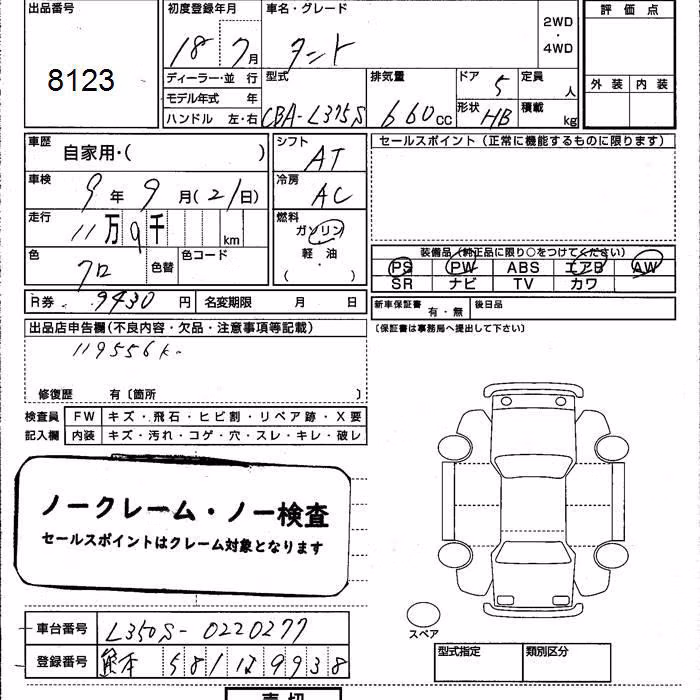 出品番号 初度登録年月 車名・グレード 2WD・4WD 評価点
8123 18 7月 タント
ディーラー・並行 型式 排気量 ドア 5 定員 人 外装 内装
モデル年式 年 CBA-L375S 660cc
ハンドル 左・右 形状 HB 積載 kg
車歴 自家用・( ) シフト AT セールスポイント (正常に機能するものに限ります)
車検 9年9月(21日) 冷房 AC
走行 11万9千 km 燃料 ガソリン 軽・油 ( )
色 クロ 色替 色コード 装備品 (純正品に限り○をつけてください)
PS PW ABS エアB AW
SR ナビ TV カワ
R券 9430円 名変期限 月 日 新車保証書 有・無 後日品
出品店申告欄(不良内容・欠品・注意事項等記載) (保証書は事務局へ提出して下さい)
119556k
修復歴 有〔箇所 〕
検査員 FW キズ・飛石・ヒビ割・リペア跡・X要
記入欄 内装 キズ・汚れ・コゲ・穴・スレ・キレ・破レ
ノークレーム・ノー検査
セールスポイントはクレーム対象となります
スペア
車台番号 L350S-0220277
登録番号 熊本 581 9938
型式指定 類別区分